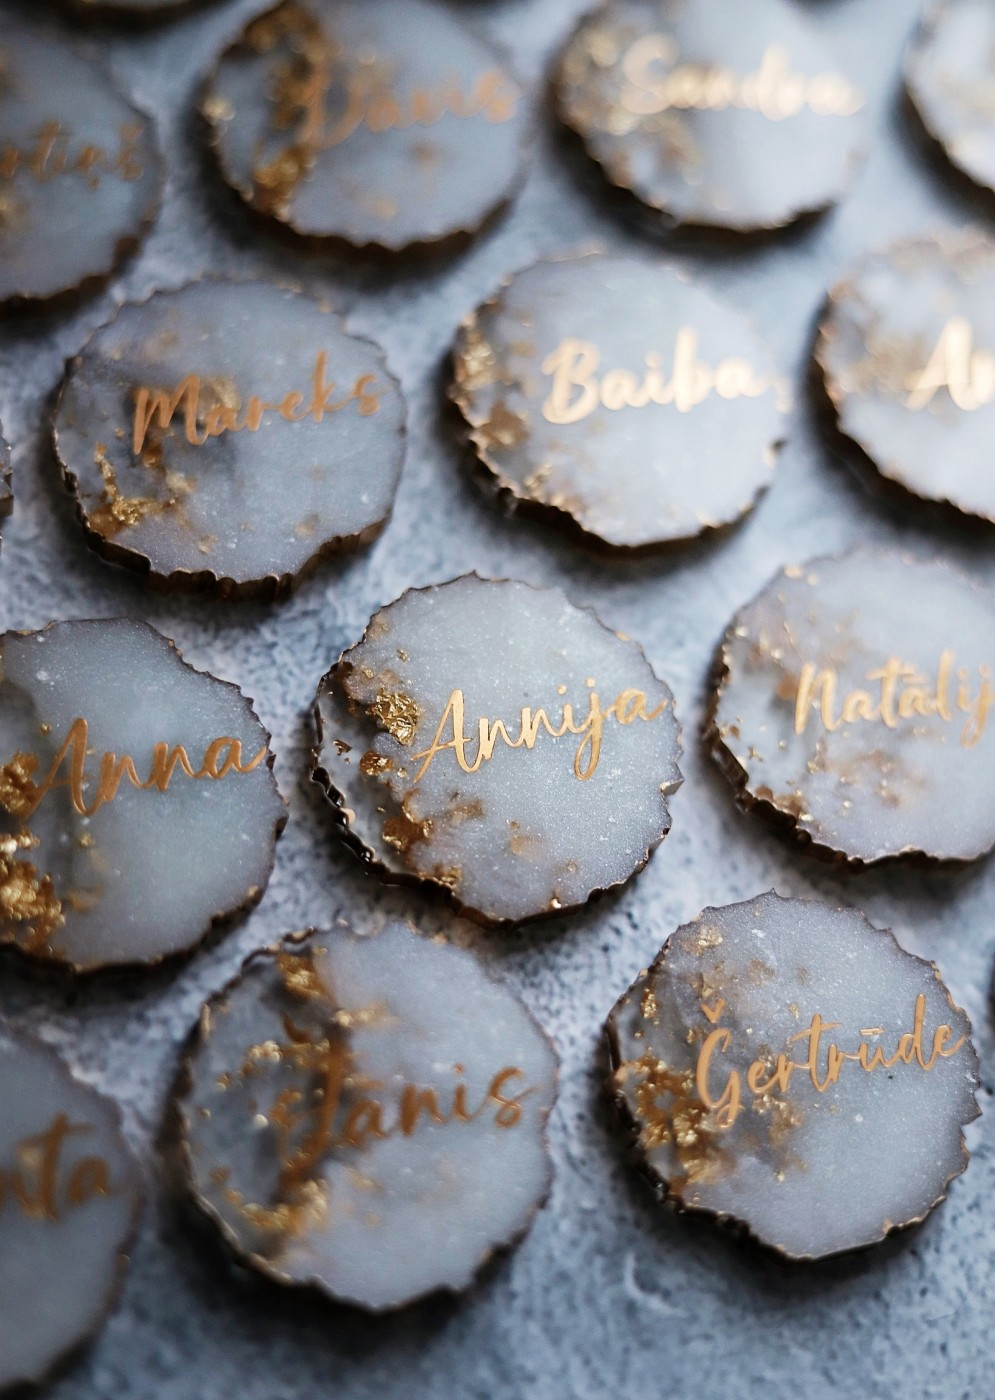 Dāvis
Sandra
Mareks
Baiba
Anna
Annija
Natālij
Jānis
Ģertrūde